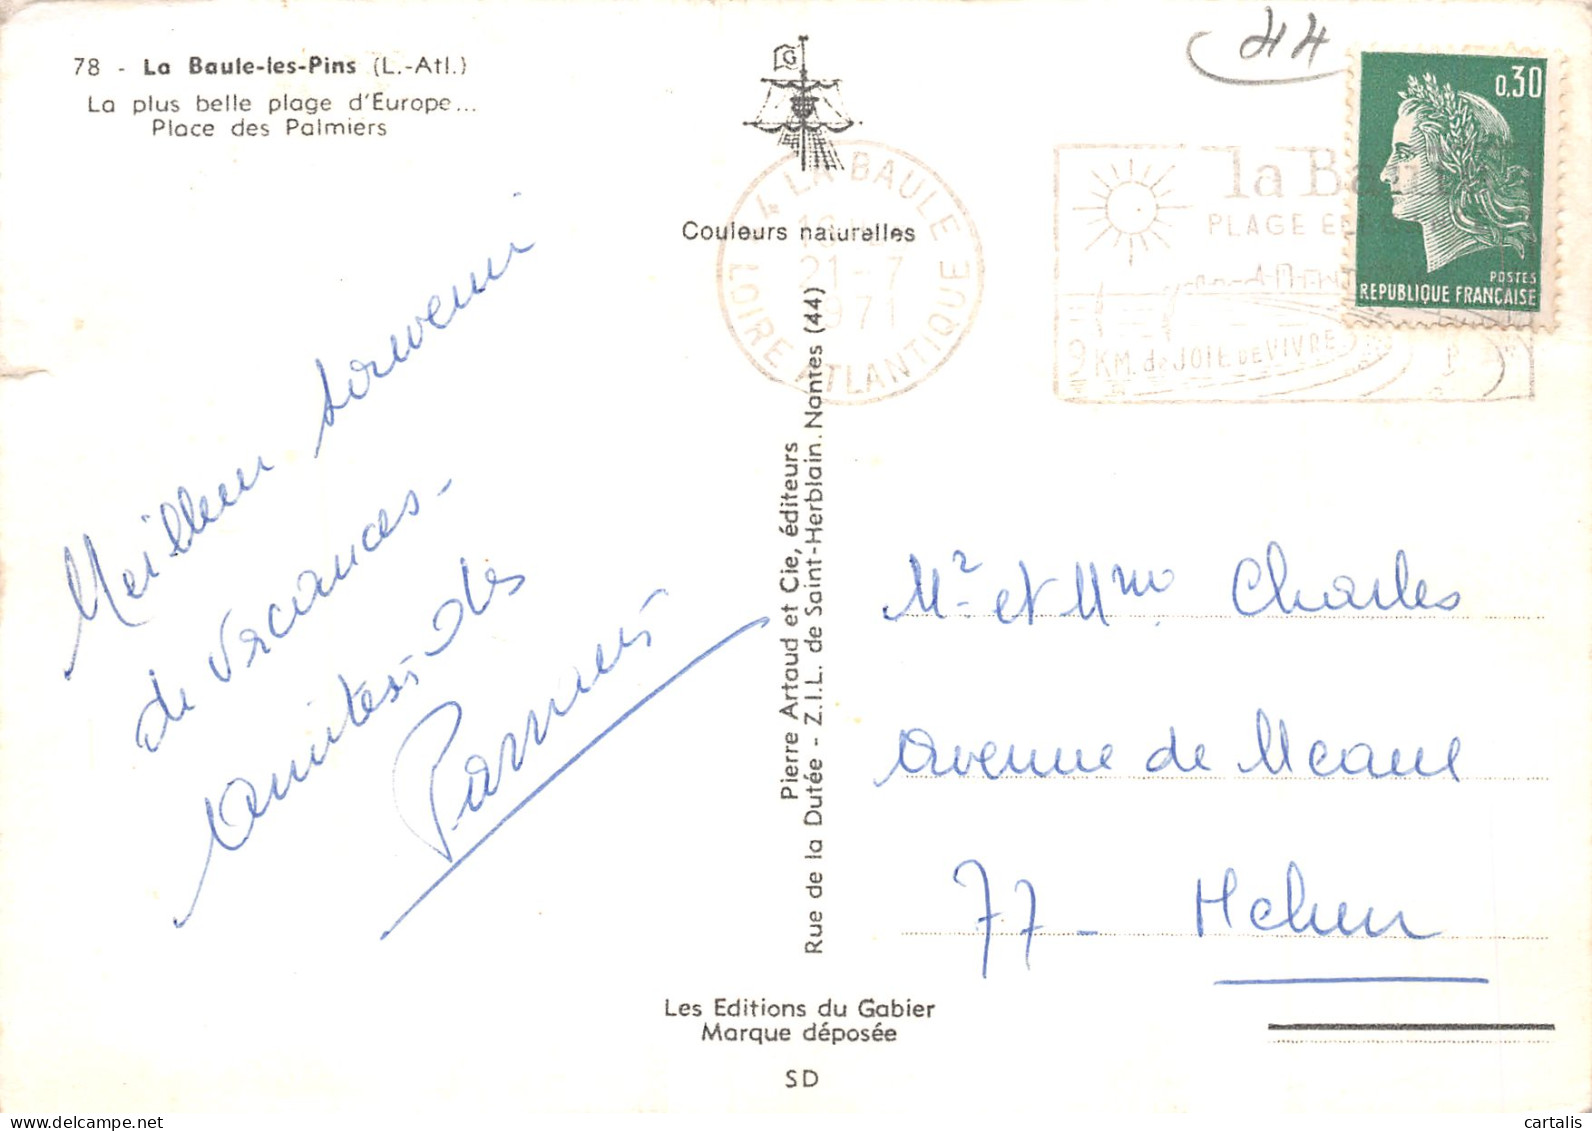 78 - La Baule-les-Pins (L.-Atl.)
La plus belle plage d'Europe...
Place des Palmiers
G
Couleurs naturelles
44
0,30
POSTES
REPUBLIQUE FRANÇAISE
44 LA BAULE
21-7
1971
LOIRE ATLANTIQUE
la Baule
PLAGE
9 KM. de JOIE DE VIVRE
Meilleur souvenir
de vacances -
Amitiés des
Pierre Artaud et Cie, éditeurs
Rue de la Dutée - Z.I.L. de Saint-Herblain. Nantes (44)
Mr et Mme Charles
Avenue de
77 - Melun
Les Editions du Gabier
Marque déposée
SD
cartalis